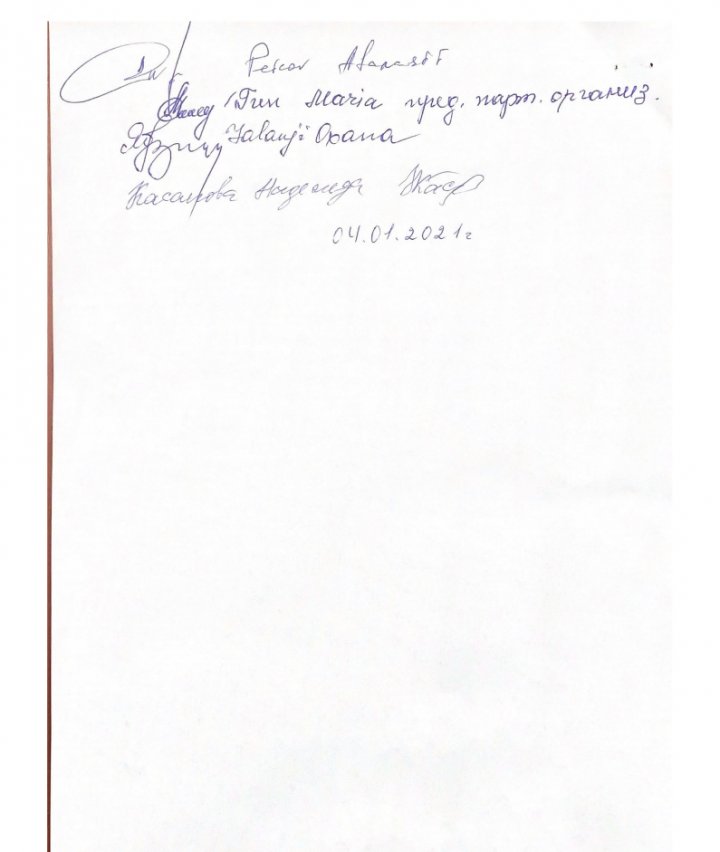 Petcov Afanasii
Гин Maria пред. парт. организ.
Jalanji Oxana
Касапова Надежда
04.01.2021г